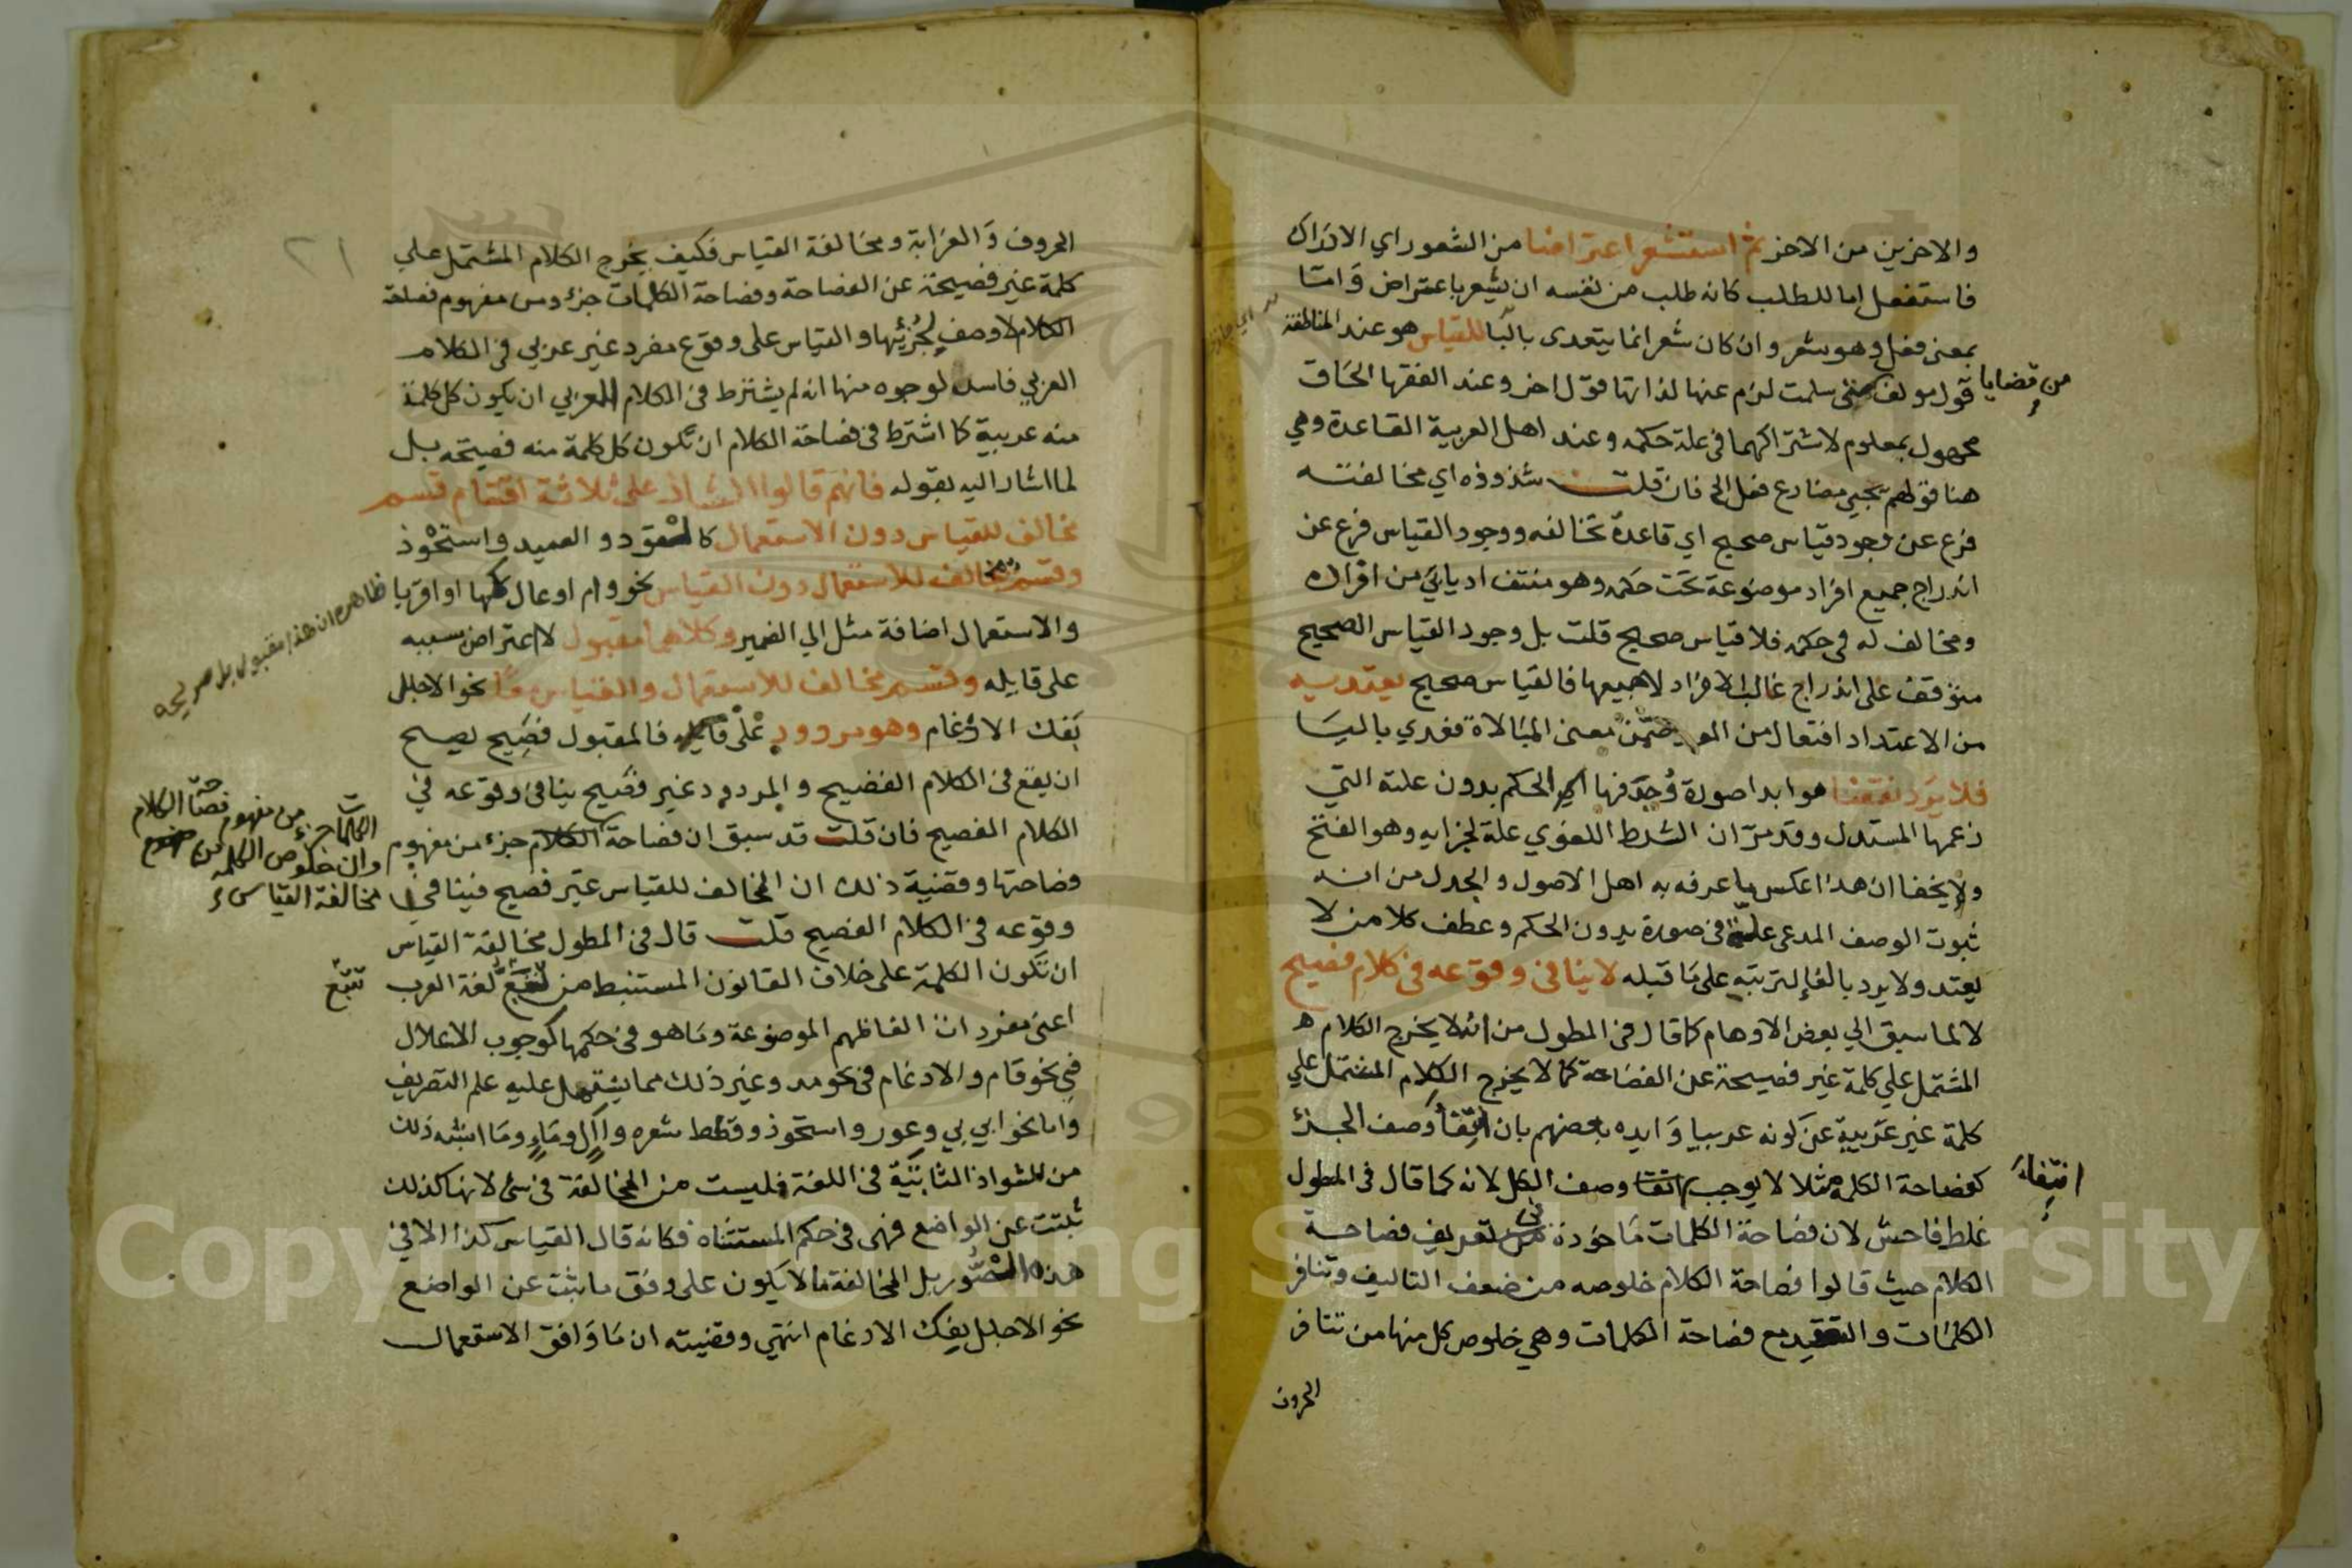 والاخرين من الاخر ثم استشعر اعتراضا من الشعور اي الادراك
فاستفعل اما للطلب كانه طلب من نفسه ان يشعر باعتراض وَامَّا
بمعنى فعل وهو شعر وان كان شعر انما يتعدى بالبا للقياس هو عند المناطقة
قول مولف متى سلمت لزم عنها لذاتها قول اخر وعند الفقها الحاق
من قضايا
مجهول بمعلوم لاشتراكهما في علة حكمه وعند اهل العربية القاعدة وهي
هنا قولهم يجيي مضارع فعل الخ فان قلت شذوذه اي مخالفته
فرع عن وجود قياس صحيح اي قاعدة تخالفه ووجود القياس فرع عن
اندراج جميع افراد موضوعه تحت حكمه وهو منتف اذ يابي من افراده
ومخالف له في حكمه فلا قياس صحيح قلت بل وجود القياس الصحيح
متوقف على اندراج غالب الافراد لا جميعها فالقياس صحيح يعتد به
من الاعتداد افتعال من العد ضمن معنى المبالاة فعدي باليا
فلا يرد نقضا هو ابدا صورة وُجد فيها الحكم بدون علته التي
زعمها المستدل وقد مرّ ان الشرط اللغوي علة لجزايه وهو الفتح
ولا يخفا ان هذا عكس ما عرفه به اهل الاصول والجدل من انه
ثبوت الوصف المدعى علية في صورة بدون الحكم وعطف كلا من لا
يعتد ولا يرد بالفا لترتبه على ما قبله لا ينافي وقوعه في كلام فصيح
لا لما سبق الي بعض الاوهام كما قال في المطول من انه لا يخرج الكلام
المشتمل علي كلمة غير فصيحة عن الفصاحة كما لا يخرج الكلام المشتمل علي
كلمة غير عَرَبية عن كونه عربيا وَايده بعضهم بان انتفا وصف الجزء
كفصاحة الكلمة مثلا لا يوجب انتفا وصف الكل لانه كما قال في المطول
انتِفاءَ
غلط فاحش لان فصاحة الكلمات ماخوذة في تعريف فصاحة
الكلام حيث قالوا فصاحة الكلام خلوصه من ضعف التاليف وتنافر
الكلمات والتعقيد مع فصاحة الكلمات وهي خلوص كل منها من تنافر
الحروف
٢١
الحروف وَالغرابة ومخالفة القياس فكيف يخرج الكلام المشتمل علي
كلمة غير فصيحة عن الفصاحة وفصاحة الكلمات جزء من مفهوم فصاحة
الكلام لا وصف لجُزئها والقياس على وقوع مفرد غير عربي في الكلام
العربي فاسد لوجوه منها انه لم يشترط في الكلام العربي ان يكون كل كلمة
منه عربية كما اشترط في فصاحة الكلام ان تكون كل كلمة منه فصيحة بل
لما اشار اليه بقوله فانهم قالوا الشاذ على ثلاثة اقسام قسم
مخالف للقياس دون الاستعمال كالقود والصيد واستحْوذ
وقسم مخالف للاستعمال دون القياس نحو وام اوعال كها او اقربا
والاستعمال اضافة مثل الي الضمير وكلاهما مقبول لا اعتراض بسببه
ظاهره ان هذا مقبول بل صريحه
على قايله وقسم مخالف للاستعمال والقياس معًا نحو الاجلل
بَفك الادْغام وهو مردود علْى قايله فالمقبول فصيح يصح
ان يقع في الكلام الفصيح والمردود غير فصيح ينافي وقوعه في
الكلام الفصيح فان قلت قد سبق ان فصاحة الكلام جزء من مفهوم
الكلمات جزء من مفهوم فصاحة الكلام
وان خلوص الكلمة من
مخالفة القياس
فصاحتها وقضية ذلك ان المخالف للقياس غير فصيح فينافي
وقوعه في الكلام الفصيح قلت قال في المطول مخالفة القياس
ان تكون الكلمة على خلاف القانون المستنبط من تتبع لُغة العرب
تتبّع
اعني مفردات الفاظهم الموضوعة وما هو في حكمها كوجوب الاعلال
في نحو قام والادغام في نحو مد وغير ذلك مما يشتمل عليه علم التصريف
وَاما نحو ابي يابي وعور واستحوذ وقطط شعره واآل وماء وما اشبه ذلك
من الشواذ الثابتة في اللغة فليست من المخالفة في شئ لانها كذلك
ثبتت عن الواضع فهي في حكم المستثناه فكانه قال القياس كذا الا في
هذه الصُّور بل المخالفة ما لا يكون على وفق ما ثبت عن الواضع
نحو الاجلل بفك الادغام انتهي وقضيته ان مَا وَافق الاستعمال
Copyright © King Saud University